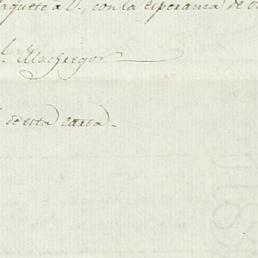 aquete a V., con la esperanza de
MacGregor
de esta carta.